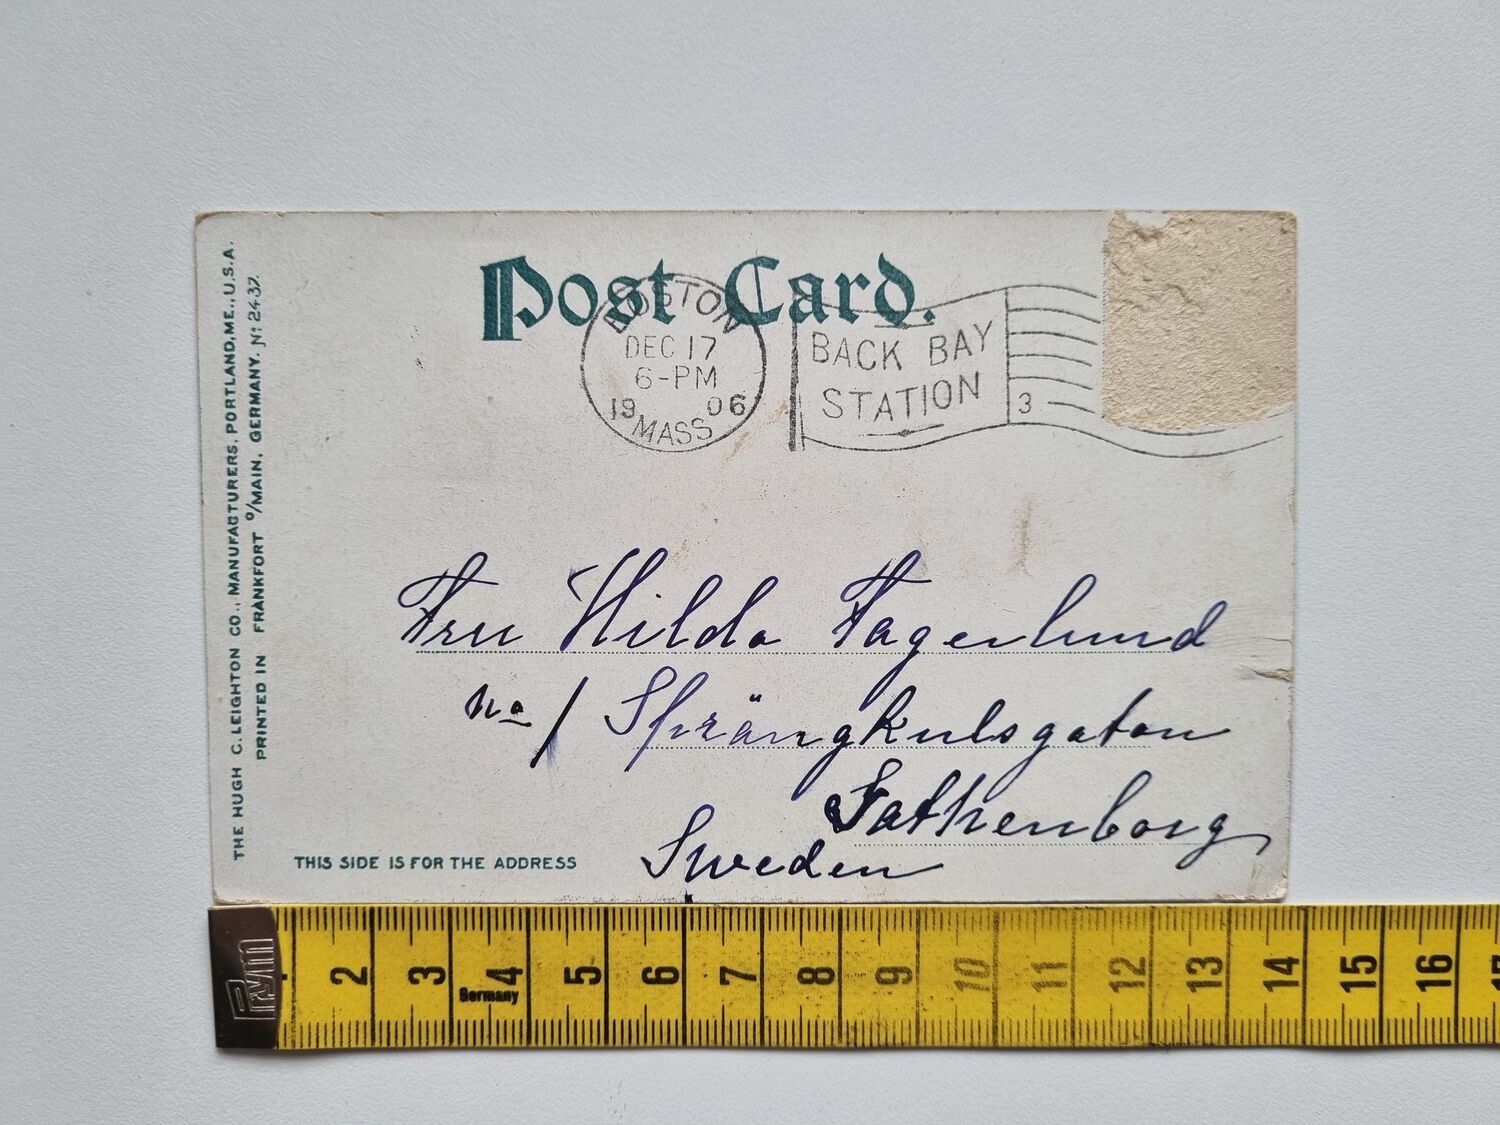 Post Card.
BOSTON
DEC 17
6-PM
19 06
MASS
BACK BAY
STATION
3
THE HUGH C. LEIGHTON CO., MANUFACTURERS, PORTLAND, ME., U.S.A.
PRINTED IN FRANKFORT O/MAIN, GERMANY. No 2437.
Fru Hilda Fagerlund
No 1 Sprängkulsgatan
Gothenborg
Sweden
THIS SIDE IS FOR THE ADDRESS
Prym
1 2 3 4 5 6 7 8 9 10 11 12 13 14 15 16 17
Germany